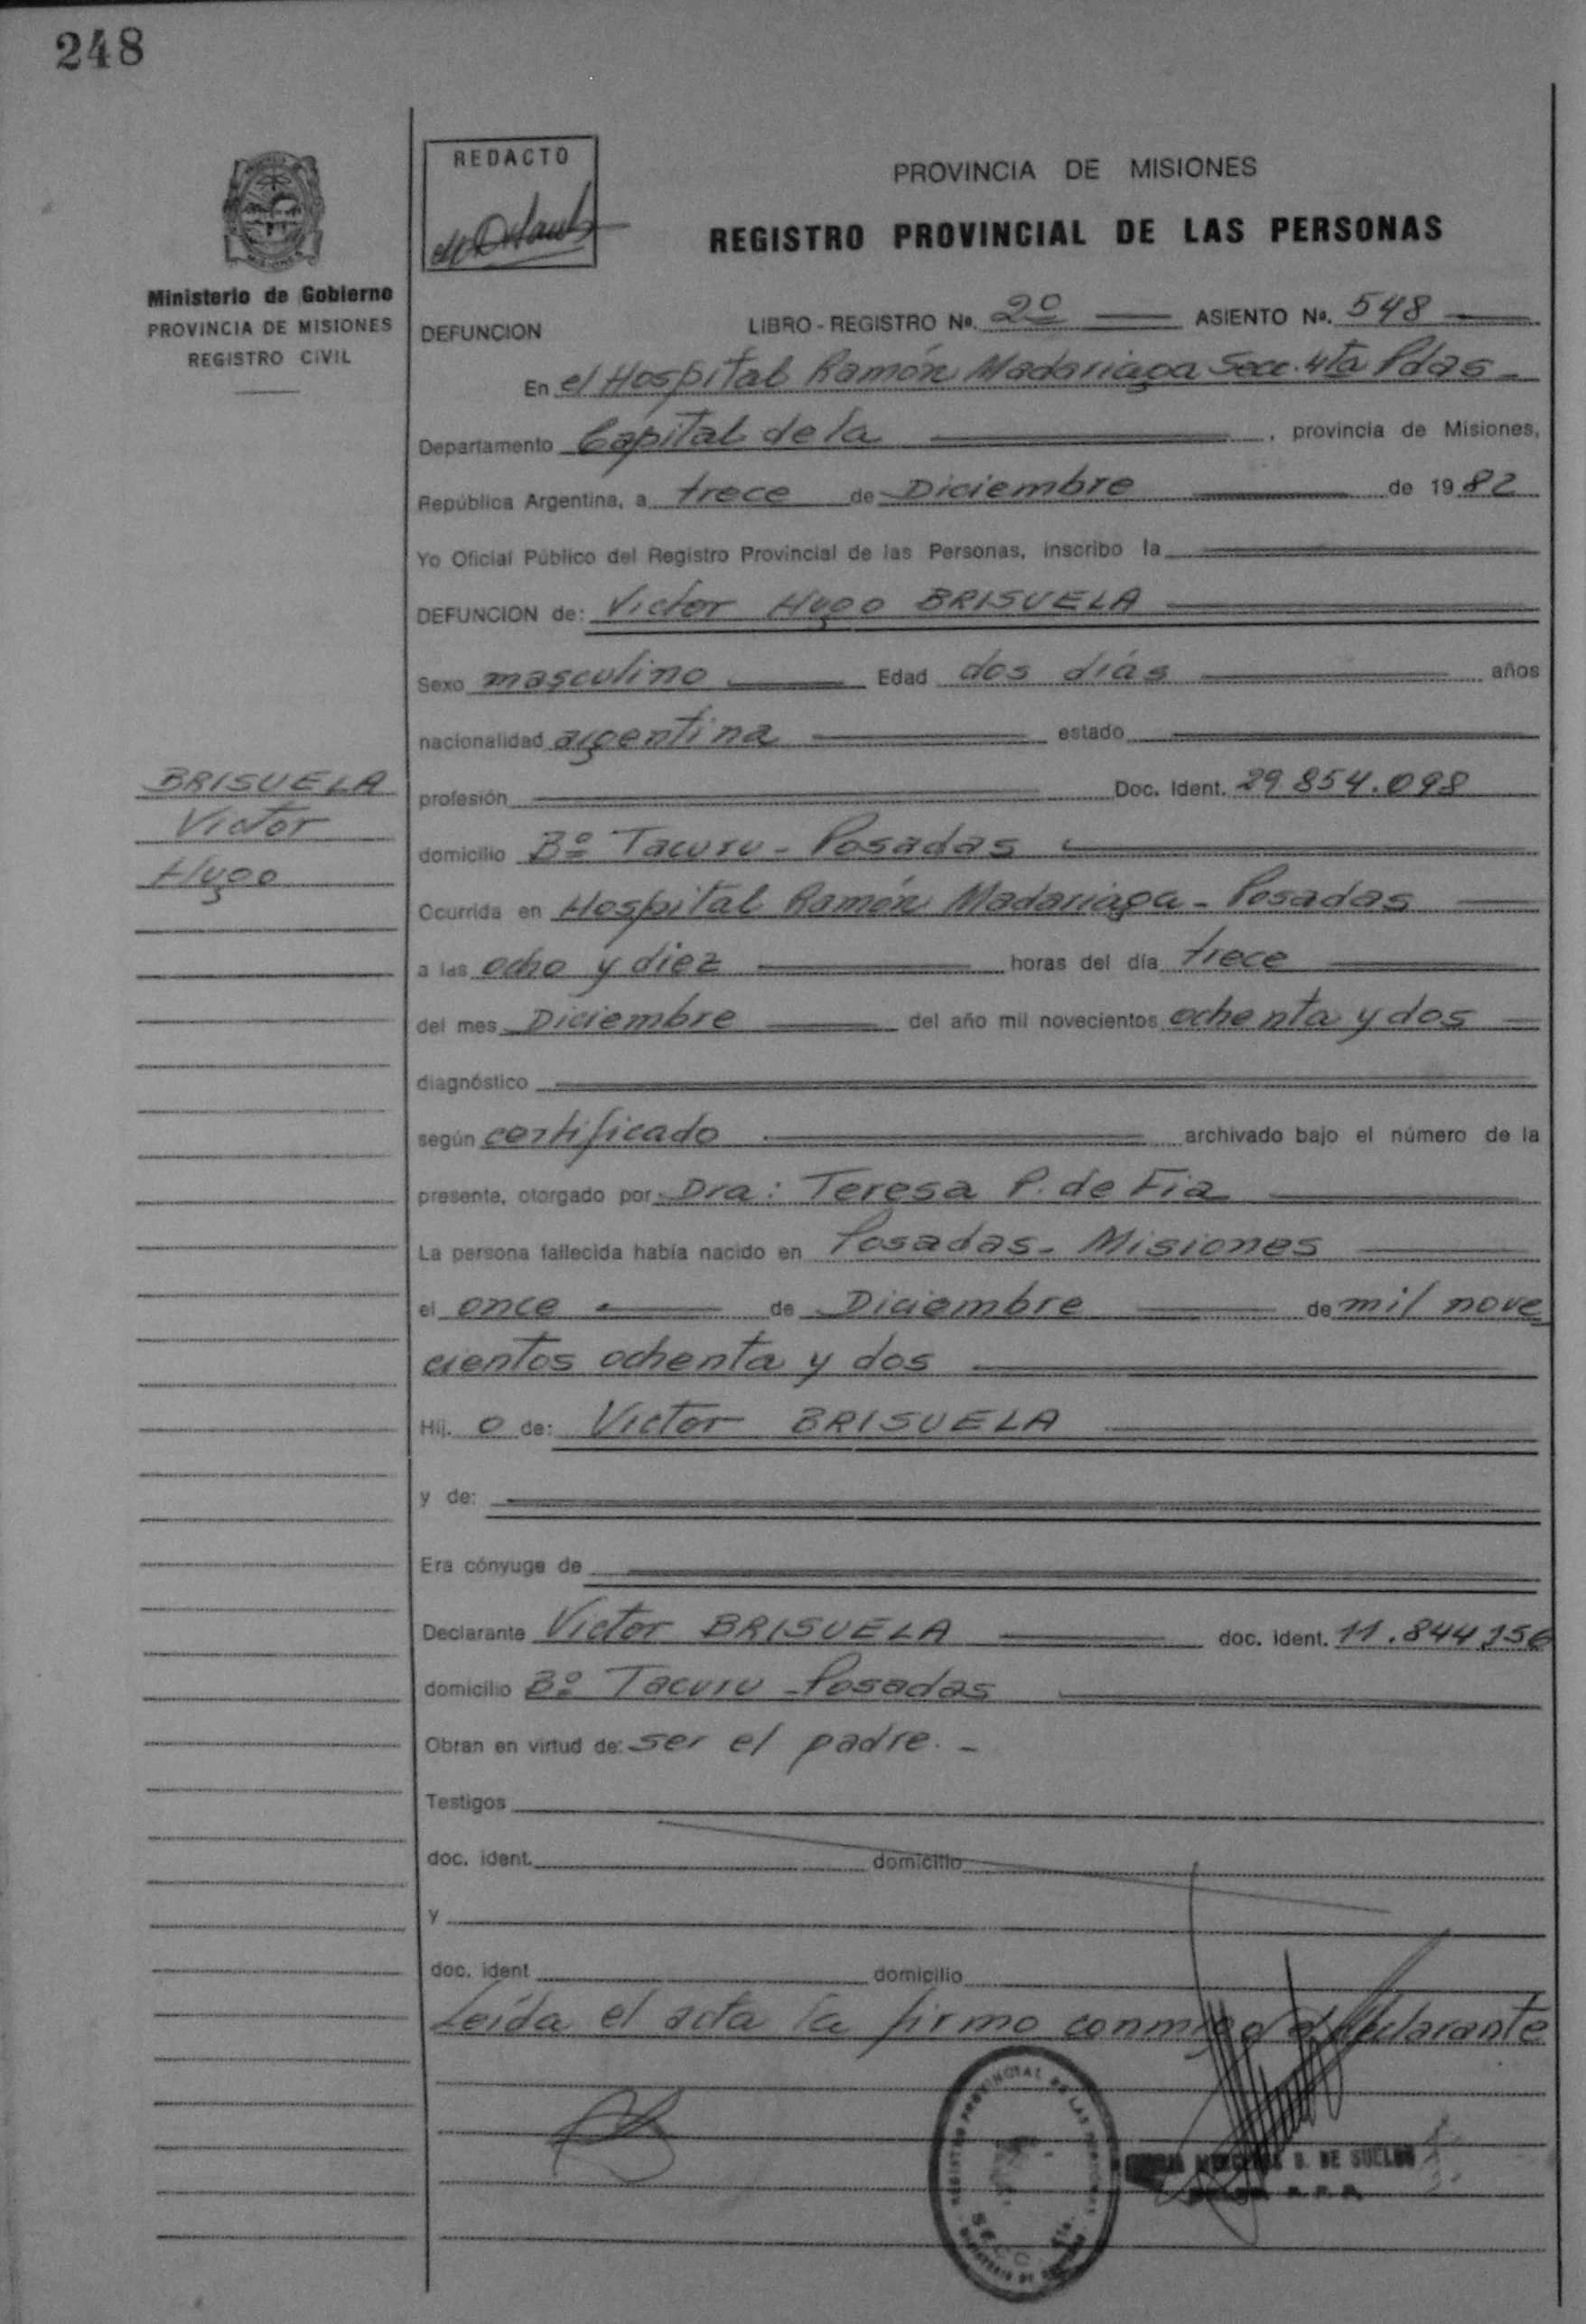 248
REDACTO
PROVINCIA DE MISIONES
REGISTRO PROVINCIAL DE LAS PERSONAS
Ministerio de Gobierno
PROVINCIA DE MISIONES
REGISTRO CIVIL
DEFUNCION LIBRO - REGISTRO Nº. 2º ASIENTO Nº. 548
En el Hospital Ramón Madariaga Secc. 4ta Pdas -
Departamento Capital de la , provincia de Misiones,
República Argentina, a trece de Diciembre de 1982
Yo Oficial Público del Registro Provincial de las Personas, inscribo la
DEFUNCION de: Victor Hugo BRISUELA
Sexo masculino Edad dos diás años
nacionalidad argentina estado
BRISUELA
Victor
Hugo
profesión Doc. Ident. 29.854.098
domicilio Bº Tacuru - Posadas
Ocurrida en Hospital Ramón Madariaga - Posadas
a las ocho y diez horas del día trece
del mes Diciembre del año mil novecientos ochenta y dos
diagnóstico
según certificado archivado bajo el número de la
presente, otorgado por Dra: Teresa P. de Fia
La persona fallecida había nacido en Posadas - Misiones
el once de Diciembre de mil nove
cientos ochenta y dos
Hij. o de: Victor BRISUELA
y de:
Era cónyuge de
Declarante Victor BRISUELA doc. ident. 11.844.156
domicilio Bº Tacuru - Posadas
Obran en virtud de: ser el padre. -
Testigos
doc. ident. domicilio
y
doc. ident domicilio
Leída el acta la firmo conmigo el declarante
REGISTRO PROVINCIAL DE LAS PERSONAS
D. DE SUELDO